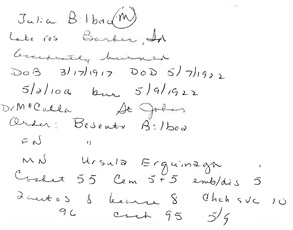 Julia Bilbao (M)
Late res Barber, Id
Accidently burned
DOB 3/17/1917 DOD 5/7/1922
5/2/10A bur 5/9/1922
Dr McCalla St Johns
Order: Bilboa
FN "
MN Ursula Erquinaga
Casket 55 Cem 5+5 emb/dis 5
2 autos 8 hearse 8 Chch svc 10
96 cash 95 5/9